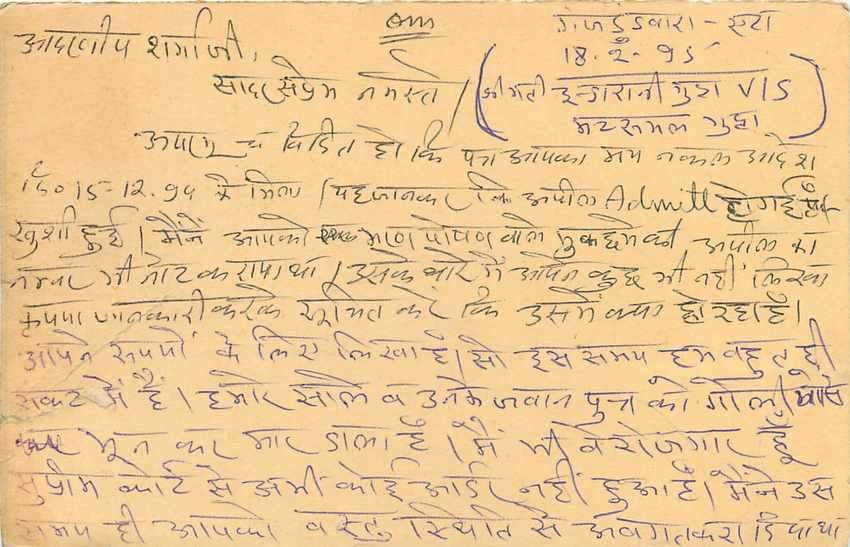 ॐ
गंजडुंडवारा - एटा
18.2.95
आदरणीय शर्माजी,
सादर सप्रेम नमस्ते /
(श्रीमती इन्द्रारानी गुप्ता V/S
गुप्ता)
विदित हो कि पत्र आपका मय नकल आदेश
दि० 15-12.94 के मिला / यह जानकर कि अपील Admitt हो गई है
खुशी हुई। मैंने आपको भरण पोषण वाले मुकद्दमे की अपील का
नम्बर भी नोट कराया था / उसके बारे में आपने कुछ भी नहीं लिखा
कृपया जानकारी करके सूचित करें कि उसमें क्या हो रहा है।
आपने रुपयों के लिए लिखा है। सो इस समय हम बहुत ही
संकट में हैं। हमारे साले व उनके जवान पुत्र को गोली
भून कर मार डाला है। मैं भी बेरोजगार हूँ
सुप्रीम कोर्ट से अभी कोई आर्डर नहीं हुआ है। मैंने उस
समय ही आपको वस्तु स्थिति से अवगत करा दिया था